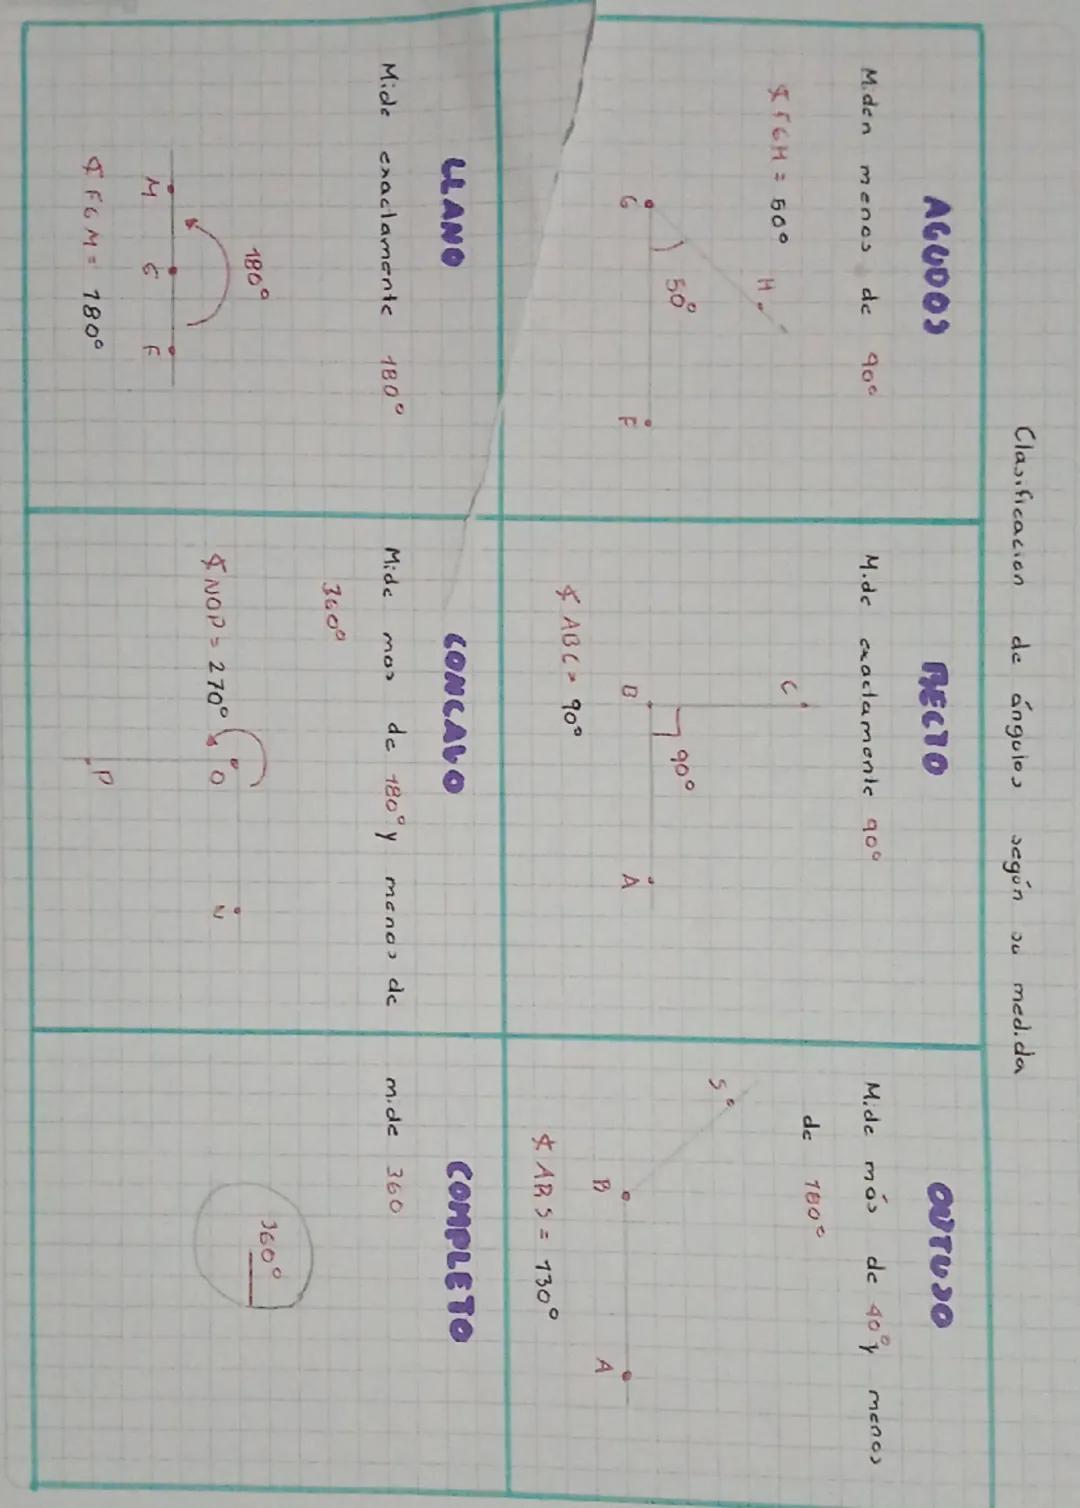 Clasificacion de ángulos según su medida
AGUDOS
Miden menos de 90°
∡ FGH = 50°
H
50°
G
F
RECTO
Mide exactamente 90°
C
90°
B
A
∡ ABC = 90°
OBTUSO
Mide más de 90° y menos
de 180°
S
B
A
∡ ABS = 130°
LLANO
Mide exactamente 180°
180°
M G F
∡ FGM = 180°
CONCAVO
Mide mas de 180° y menos de
360°
∡ NOP = 270°
O
N
P
COMPLETO
mide 360
360°